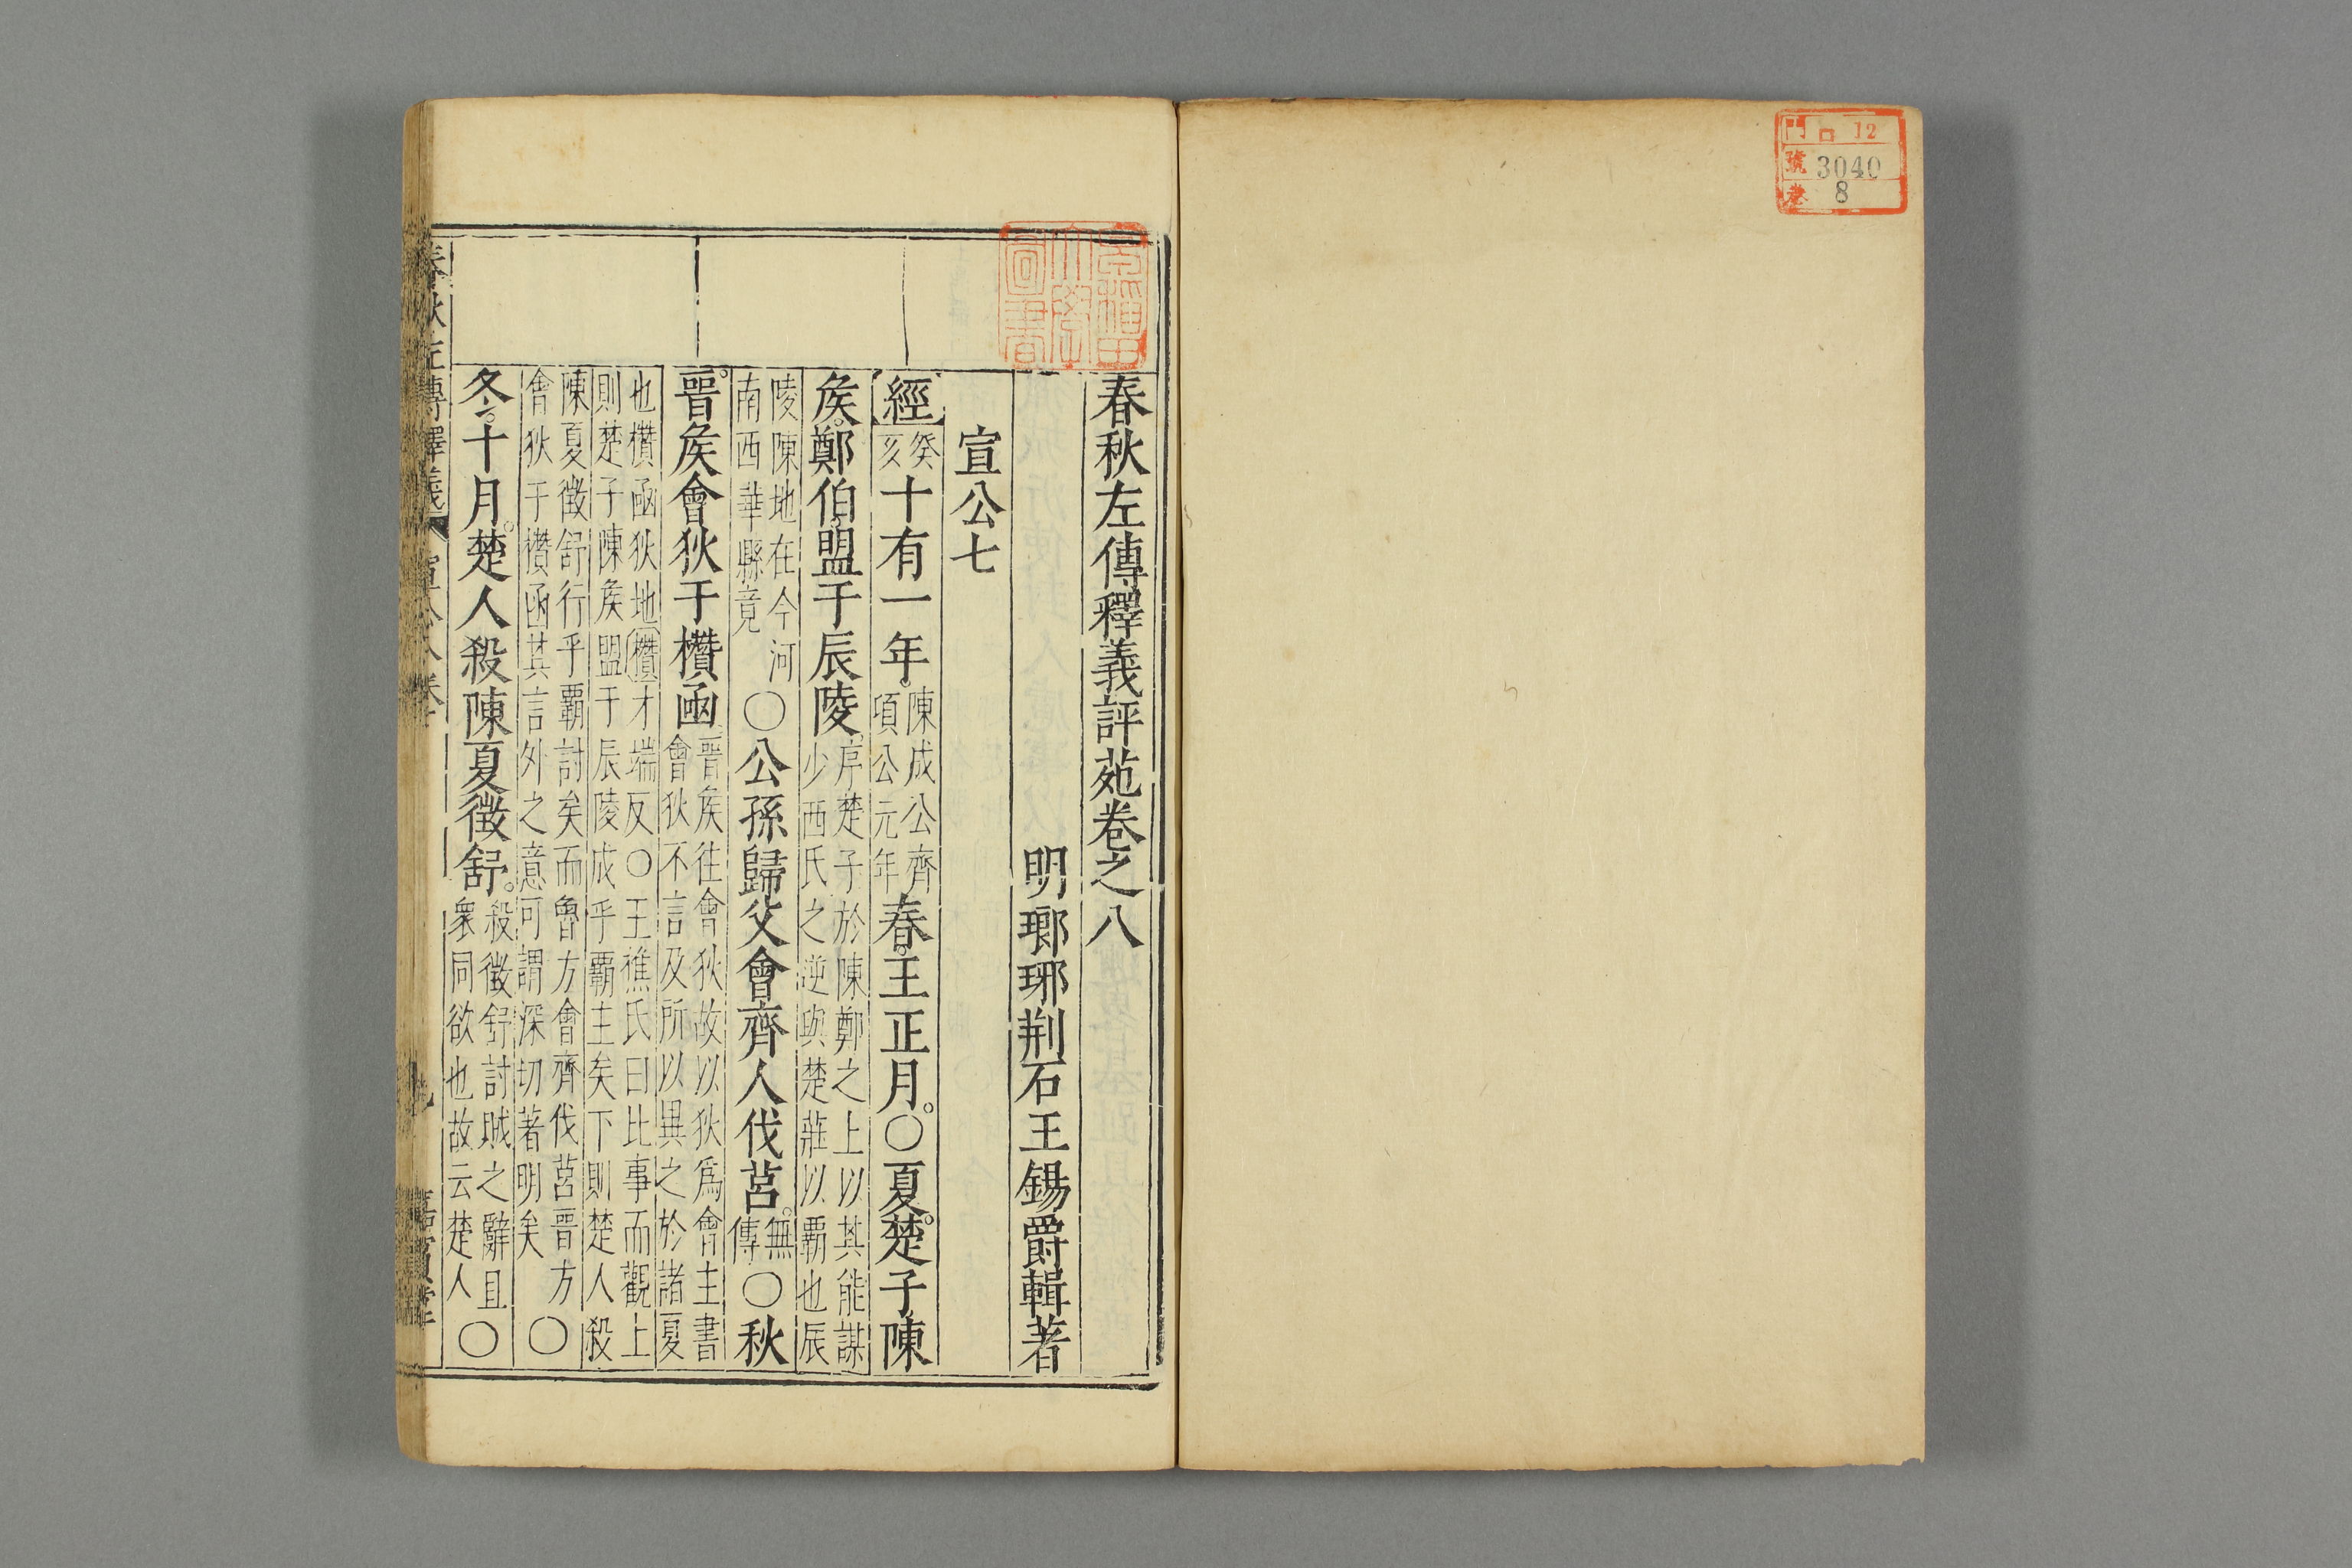 門 ロ 12
號 3040
卷 8
早稻田大學圖書
春秋左傳釋義評苑卷之八
明瑯琊荆石王錫爵輯著
宣公七
經癸亥十有一年陳成公齊項公元年春王正月○夏楚子陳
矦鄭伯盟于辰陵序楚子於陳鄭之上以其能謀少西氏之逆與楚莊以覇也辰
陵陳地在今河南西華縣竟○公孫歸父會齊人伐莒無傳○秋
晉矦會狄于欑函晉矦往會狄故以狄爲會主書會狄不言及所以異之於諸夏
也欑函狄地欑才端反○王樵氏曰比事而觀上則楚子陳矦盟于辰陵成乎覇主矣下則楚人殺
陳夏徵舒行乎覇討矣而魯方會齊伐莒晉方會狄于欑函其言外之意可謂深切著明矣○
冬十月楚人殺陳夏徵舒殺徵舒討賊之辭且衆同欲也故云楚人○
春秋左傳釋義 宣公